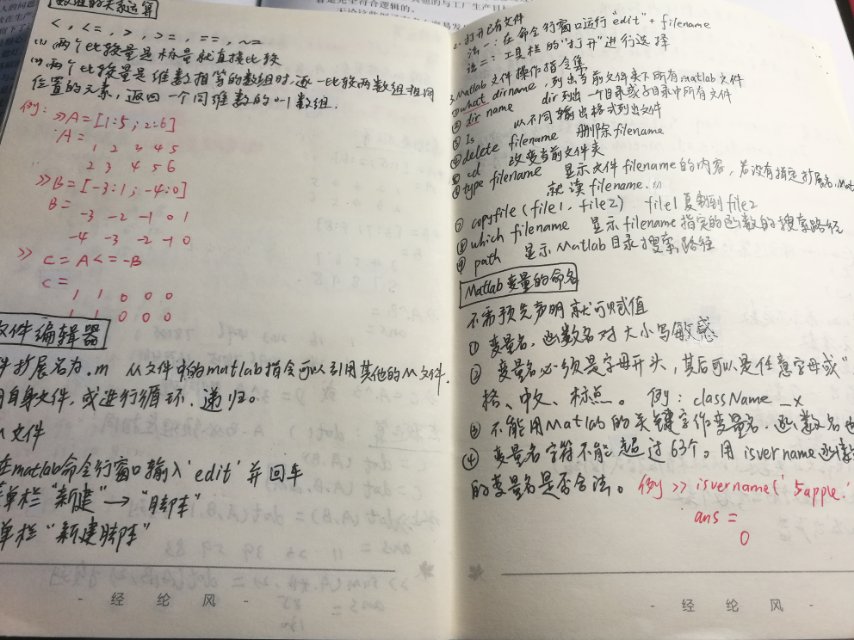 数组的关系运算
<, <=, >, >=, ==, ~=
(1) 两个比较量是标量就直接比较
(2) 两个比较量是维数相等的数组时,逐一比较两数组相同
位置的元素,返回一个同维数的0-1数组.
例: >>A=[1:5;2:6]
A=
1 2 3 4 5
2 3 4 5 6
>>B=[-3:1;-4:0]
B=
-3 -2 -1 0 1
-4 -3 -2 -1 0
>> C=A<=-B
C=
1 1 0 0 0
1 1 0 0 0
文件编辑器
件扩展名为.m 从文件中的matlab指令可以引用其他的M文件,
用自身文件,或进行循环,递归。
M文件
在matlab命令行窗口输入'edit'并回车
菜单栏"新建"→"脚阵"
单栏"新建脚阵"
经纶风
2. 打开已有文件
法一:在命令行窗口运行"edit"+filename
法二:工具栏的"打开"进行选择
3. Matlab文件操作指令集
① what dirname,列出当前文件夹下所有matlab文件
② dir name dir列出一个目录或子目录中所有文件
③ ls 以不同输出格式列出文件
④ delete filename 删除filename
⑤ cd 改变当前文件夹
⑥ type filename 显示文件filename的内容,若没有指定扩展名,Mat
就读filename.m
⑦ copyfile(file1,file2) file1复制到file2
⑧ which filename 显示filename指定的函数的搜索路径
⑨ path 显示Matlab目录搜索路径
Matlab变量的命名
不需预先声明就可赋值
① 变量名,函数名对大小写敏感
② 变量名必须是字母开头,其后可以是任意字母或"
括、中文、标点。例:className_x
③ 不能用Matlab的关键字作变量名,函数名也
④ 变量名字符不能超过63个。用isvername函数
的变量名是否合法。例 >> isvername('5apple.'
ans=
0
经纶风